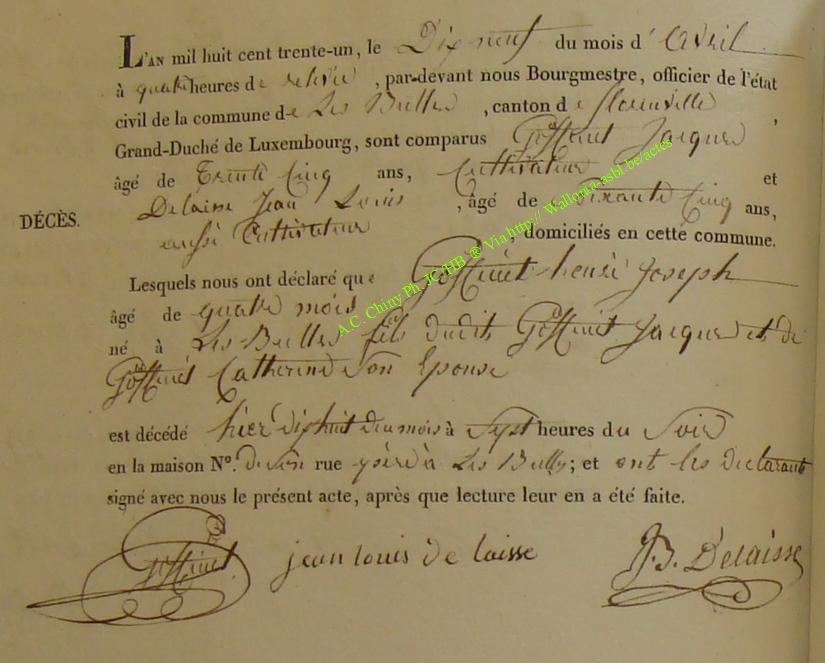 L'AN mil huit cent trente-un, le Dix neuf du mois d' Avril
à quatre heures de relevée, par-devant nous Bourgmestre, officier de l'état
civil de la commune de Les Bulles, canton de florenville,
Grand-Duché de Luxembourg, sont comparus Goffinet Jacques
âgé de Trente Cinq ans, Cultivateur et
Delaisse Jean Louis, âgé de soixante Cinq ans,
aussi Cultivateur, domiciliés en cette commune.
DÉCÈS.
Lesquels nous ont déclaré que Goffinet henri Joseph
âgé de quatre mois
né à Les Bulles fils dudit Goffinet Jacques et de
Goffinet Catherine Son Epouse
est décédé hier dix huit du mois à Sept heures du Soir
en la maison N°. de son rue père à Les Bulles; et ont les declarants
signé avec nous le présent acte, après que lecture leur en a été faite.
Goffinet jean louis de laisse J.B. Delaisse
A.C. Chiny Ph. JC/HB @ Via http:// Wallonia-asbl.be/actes